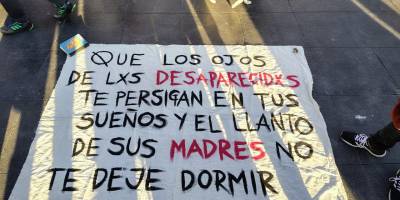 QUE LOS OJOS
DE LXS DESAPARECIDXS
TE PERSIGAN EN TUS
SUEÑOS Y EL LLANTO
DE SUS MADRES NO
TE DEJE DORMIR